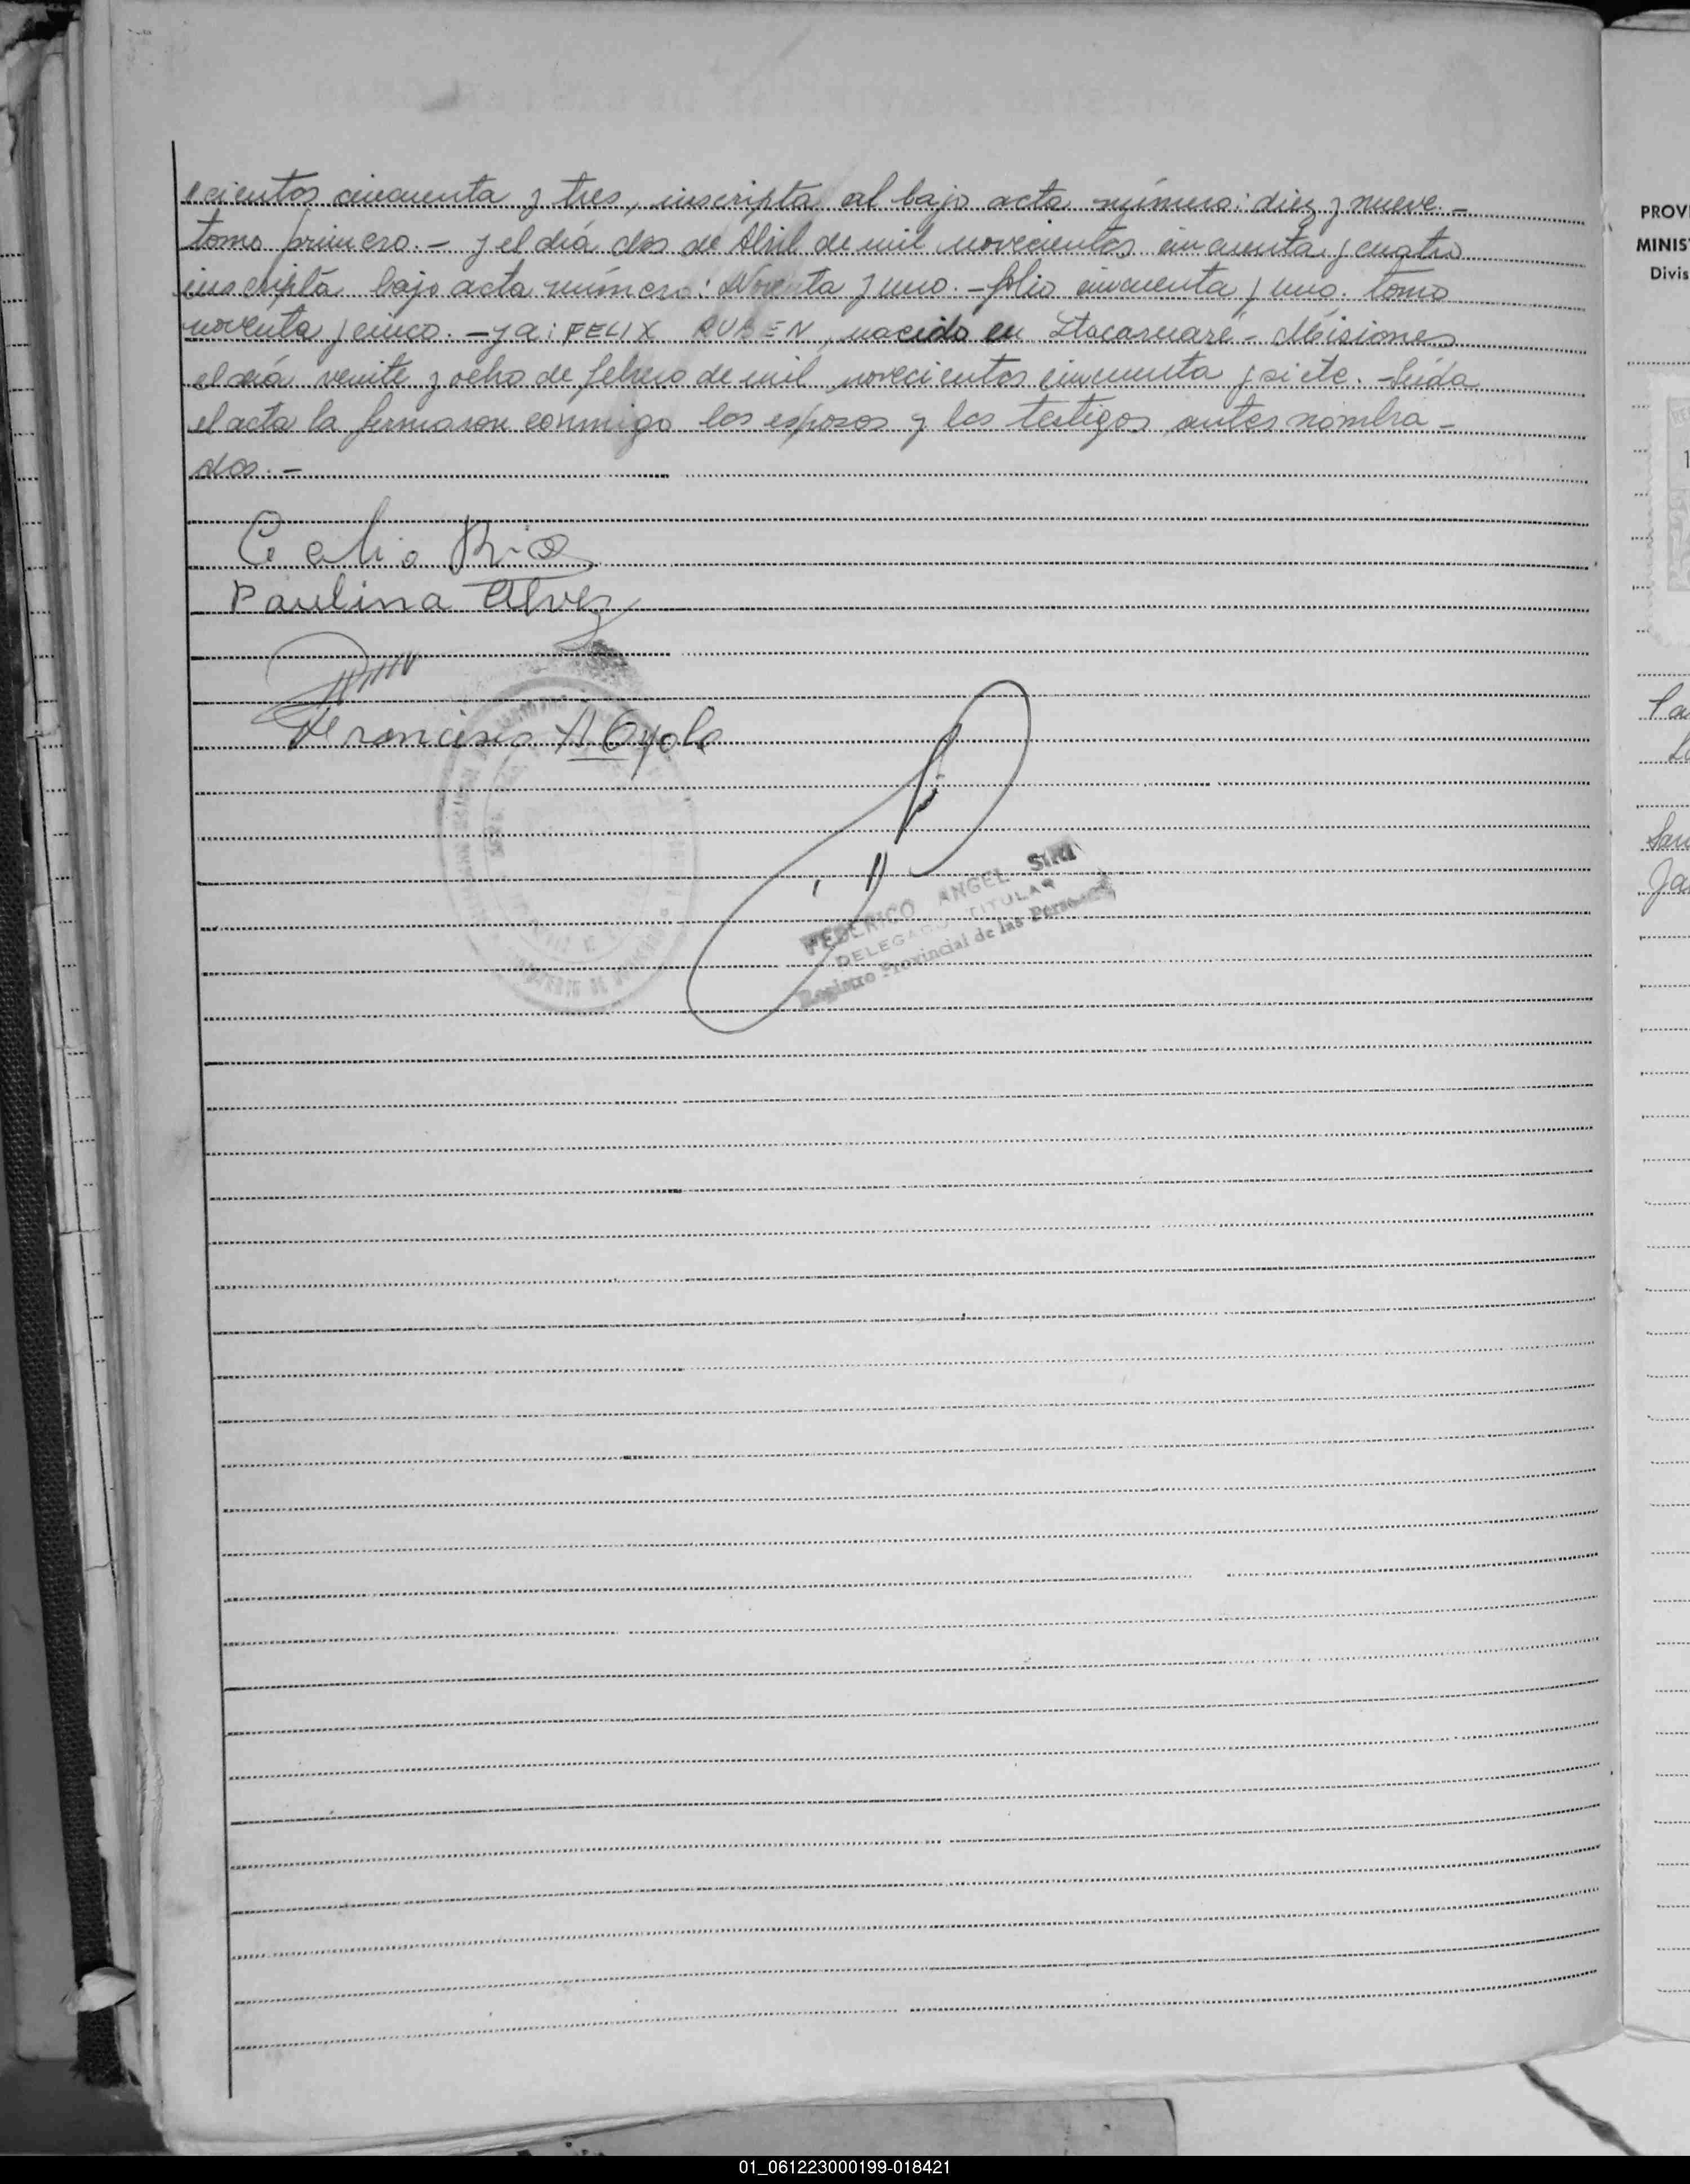 ecientos cincuenta y tres, inscripta al bajo acta número: diez y nueve.-
tomo primero.- y el día dos de Abril de mil novecientos cincuenta y cuatro
inscripta bajo acta número: Noventa y uno.- folio cincuenta y uno. tomo
noventa y cinco.- y a: FELIX RUBEN, nacido en Itacaruaré - Misiones
el día veinte y ocho de febrero de mil novecientos cincuenta y siete.- Leída
el acta la firmaron conmigo los esposos y los testigos antes nombra-
dos.-
Paulina Alvez
FEDERICO ANGEL SIRI
DELEGADO TITULAR
Registro Provincial de las Personas
PROVI
MINIS
Divis
01_061223000199-018421